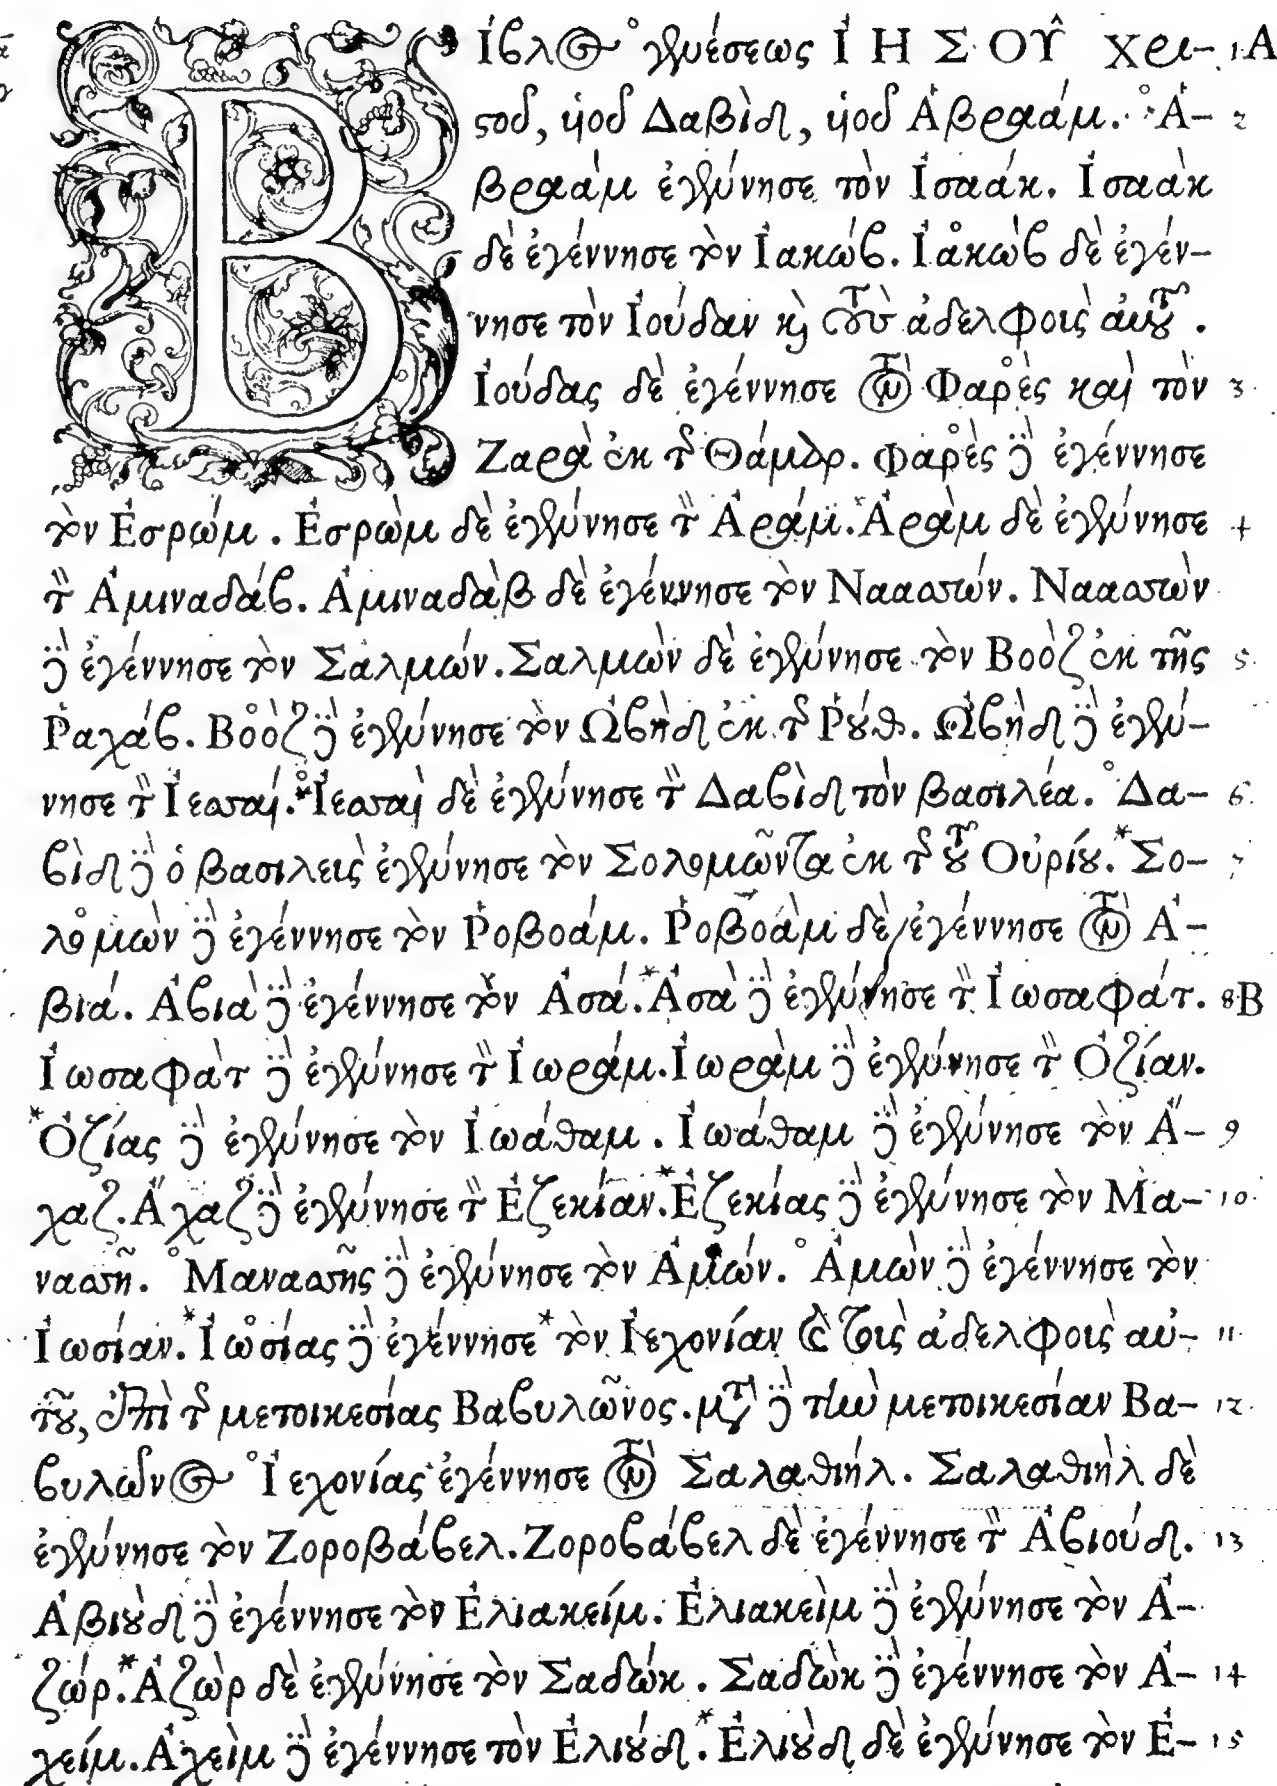 Βίβλος γενέσεως ΙΗΣΟΥ͂ Χρι- 1 A
στοῦ, υἱοῦ Δαβὶδ, υἱοῦ Ἀβραάμ. Ἀ- 2
βραὰμ ἐγέννησε τὸν Ἰσαάκ. Ἰσαὰκ
δὲ ἐγέννησε τὸν Ἰακώβ. Ἰακὼβ δὲ ἐγέν-
νησε τὸν Ἰούδαν καὶ τοὺς ἀδελφοὺς αὐτοῦ.
Ἰούδας δὲ ἐγέννησε τὸν Φαρὲς καὶ τὸν 3
Ζαρὰ ἐκ τῆς Θάμαρ. Φαρὲς δὲ ἐγέννησε
τὸν Ἐσρώμ. Ἐσρὼμ δὲ ἐγέννησε τὸν Ἀράμ. *Ἀρὰμ δὲ ἐγέννησε 4
τὸν Ἀμιναδάβ. Ἀμιναδὰβ δὲ ἐγέννησε τὸν Ναασσών. Ναασσὼν
δὲ ἐγέννησε τὸν Σαλμών. Σαλμὼν δὲ ἐγέννησε τὸν Βοὸζ ἐκ τῆς 5
Ῥαχάβ. Βοὸζ δὲ ἐγέννησε τὸν Ὠβὴδ ἐκ τῆς Ῥούθ. Ὠβὴδ δὲ ἐγέν-
νησε τὸν Ἰεσσαί. *Ἰεσσαὶ δὲ ἐγέννησε τὸν Δαβὶδ τὸν βασιλέα. Δα- 6
βὶδ δὲ ὁ βασιλεὺς ἐγέννησε τὸν Σολομῶντα ἐκ τῆς τοῦ Οὐρίου. *Σο- 7
λομὼν δὲ ἐγέννησε τὸν Ῥοβοάμ. Ῥοβοὰμ δὲ ἐγέννησε τὸν Ἀ-
βιά. Ἀβιὰ δὲ ἐγέννησε τὸν Ἀσά. *Ἀσὰ δὲ ἐγέννησε τὸν Ἰωσαφάτ. 8 B
Ἰωσαφὰτ δὲ ἐγέννησε τὸν Ἰωράμ. Ἰωρὰμ δὲ ἐγέννησε τὸν Ὀζίαν.
*Ὀζίας δὲ ἐγέννησε τὸν Ἰωάθαμ. Ἰωάθαμ δὲ ἐγέννησε τὸν Ἄ- 9
χαζ. Ἄχαζ δὲ ἐγέννησε τὸν Ἐζεκίαν. *Ἐζεκίας δὲ ἐγέννησε τὸν Μα- 10
νασσῆ. Μανασσῆς δὲ ἐγέννησε τὸν Ἀμών. Ἀμὼν δὲ ἐγέννησε τὸν
Ἰωσίαν. *Ἰωσίας δὲ ἐγέννησε *τὸν Ἰεχονίαν καὶ τοὺς ἀδελφοὺς αὐ- 11
τοῦ, ἐπὶ τῆς μετοικεσίας Βαβυλῶνος. μετὰ δὲ τὴν μετοικεσίαν Βα- 12
βυλῶνος Ἰεχονίας ἐγέννησε τὸν Σαλαθιήλ. Σαλαθιὴλ δὲ
ἐγέννησε τὸν Ζοροβάβελ. Ζοροβάβελ δὲ ἐγέννησε τὸν Ἀβιούδ. 13
Ἀβιοὺδ δὲ ἐγέννησε τὸν Ἐλιακείμ. Ἐλιακεὶμ δὲ ἐγέννησε τὸν Ἀ-
ζώρ. *Ἀζὼρ δὲ ἐγέννησε τὸν Σαδώκ. Σαδὼκ δὲ ἐγέννησε τὸν Ἀ- 14
χείμ. Ἀχεὶμ δὲ ἐγέννησε τὸν Ἐλιούδ. *Ἐλιοὺδ δὲ ἐγέννησε τὸν Ἐ- 15